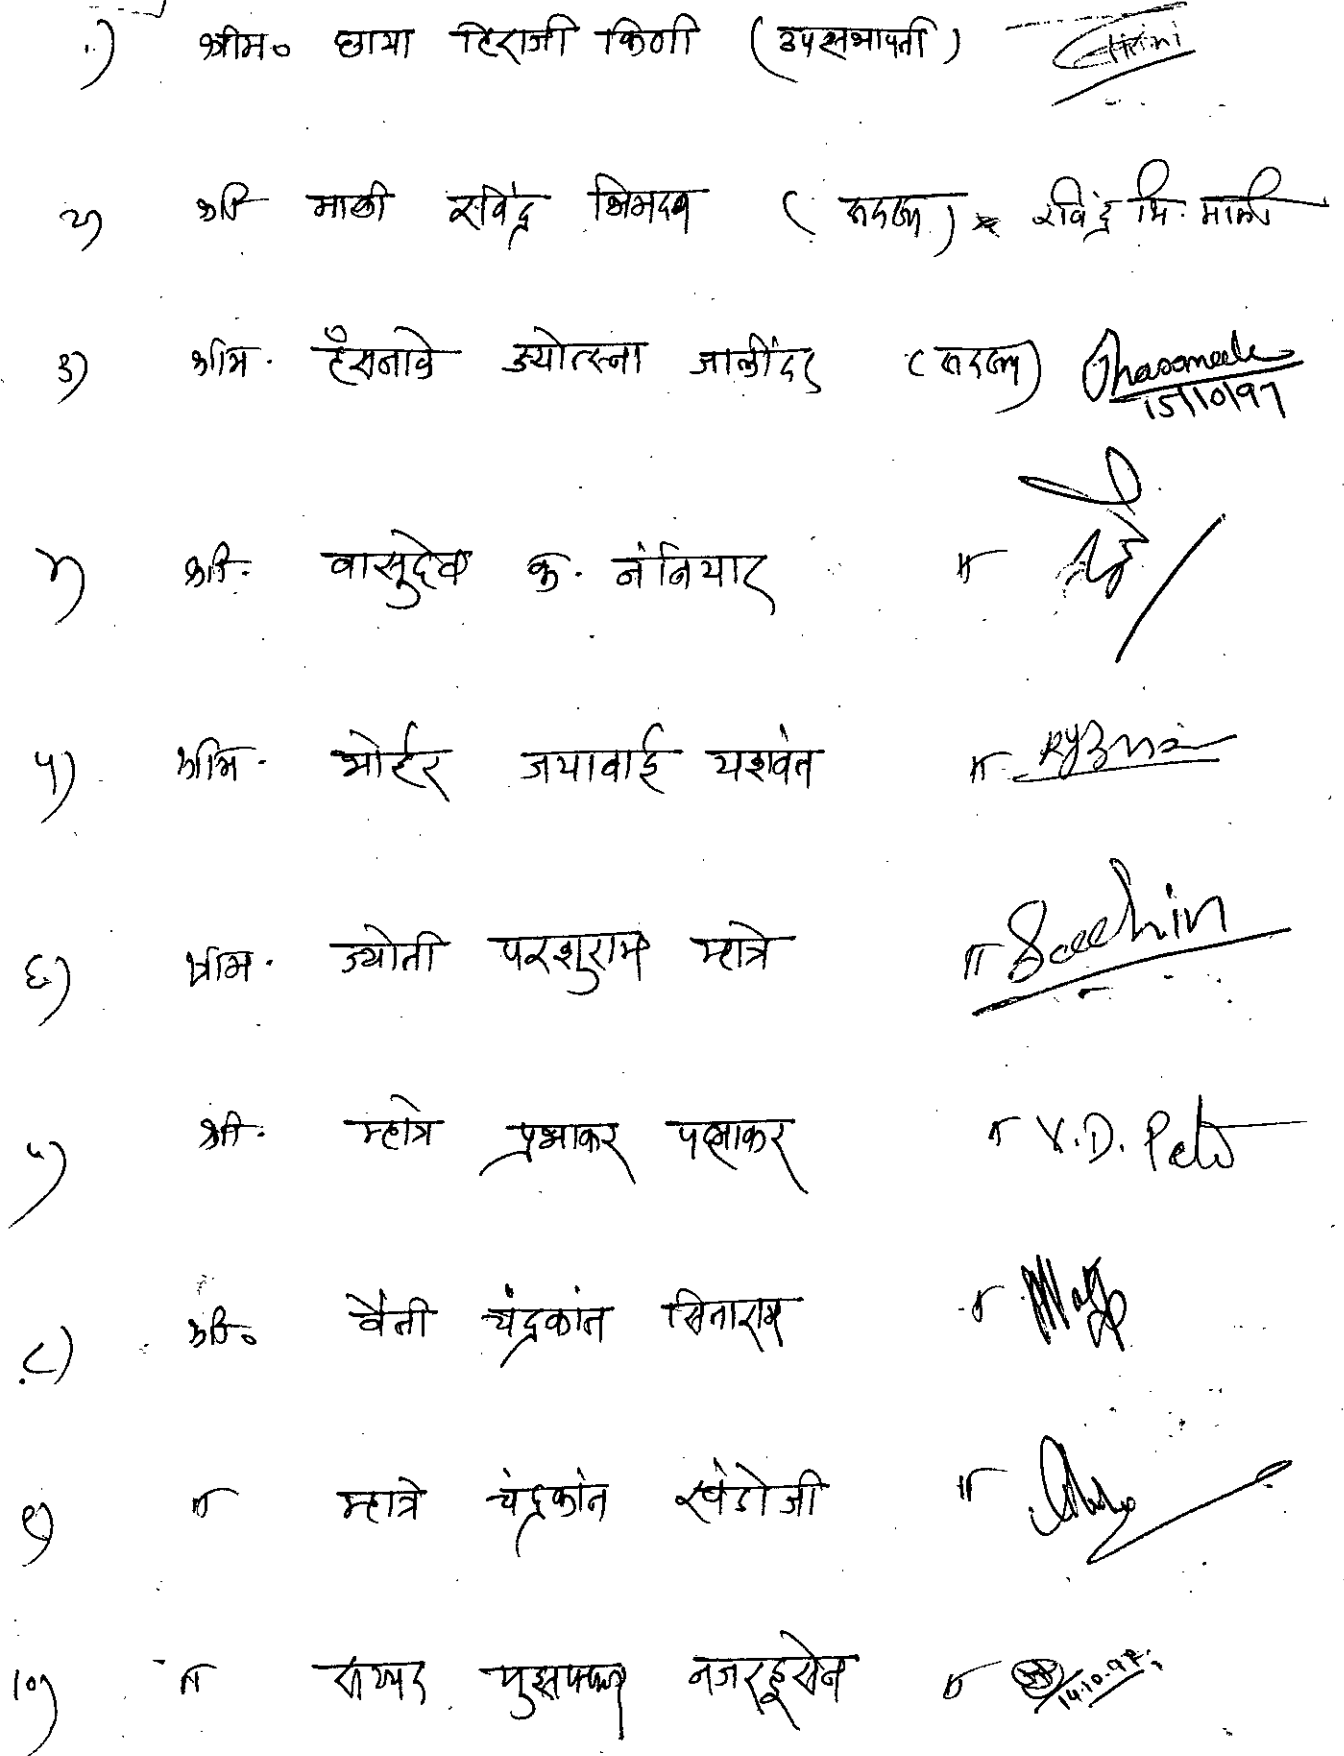 १) श्रीम० छाया हिराजी किणी (उपसभापती)
२) श्री माळी रविंद्र भिमदेव (सदस्य) रविंद्र भि. माळी
३) श्रीम. हँसनाळे ज्योत्स्ना जालींदर (सदस्य) 15/10/97
४) श्री. वासुदेव कृ. नंनियार "
५) श्रीम. भोईर जयाबाई यशवंत "
६) श्रीम. ज्योती परशुराम म्हात्रे " Sachin
७) श्री. म्हात्रे प्रभाकर पद्माकर " V.D.
८) श्री० वैती चंद्रकांत सिताराम "
९) " म्हात्रे चंद्रकांत खंडोजी "
१०) " सय्यद मुझफ्फर नजरहूसेन " 14.10.97